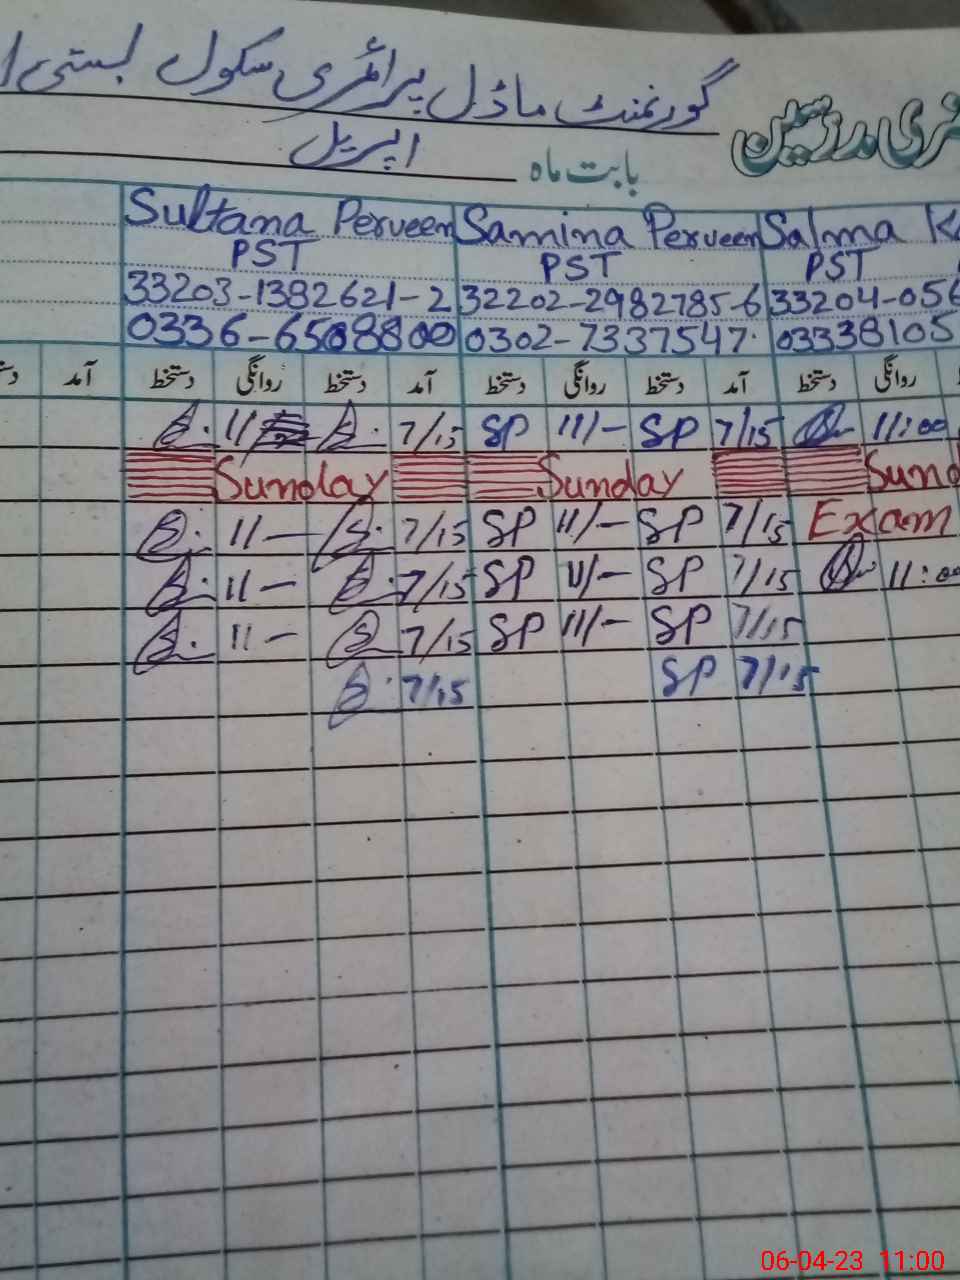 گورنمنٹ ماڈل پرائمری سکول بستی
حاضری مدرسین
بابت ماہ اپریل
Sultana Perveen Samina Perveen Salma
PST PST PST
33203-1382621-2 32202-2982785-6 33204-056
0336-6508800 0302-7337547. 03338105
آمد دستخط روانگی دستخط آمد دستخط روانگی دستخط آمد دستخط روانگی
11/ 7/15 SP 11/- SP 7/15 11:00
Sunday Sunday Sund
11- 7/15 SP 11/- SP 7/15 Exam
11- 7/15 SP 11/- SP 7/15 11:00
11- 7/15 SP 11/- SP 7/15
7/15 SP 7/15
06-04-23 11:00